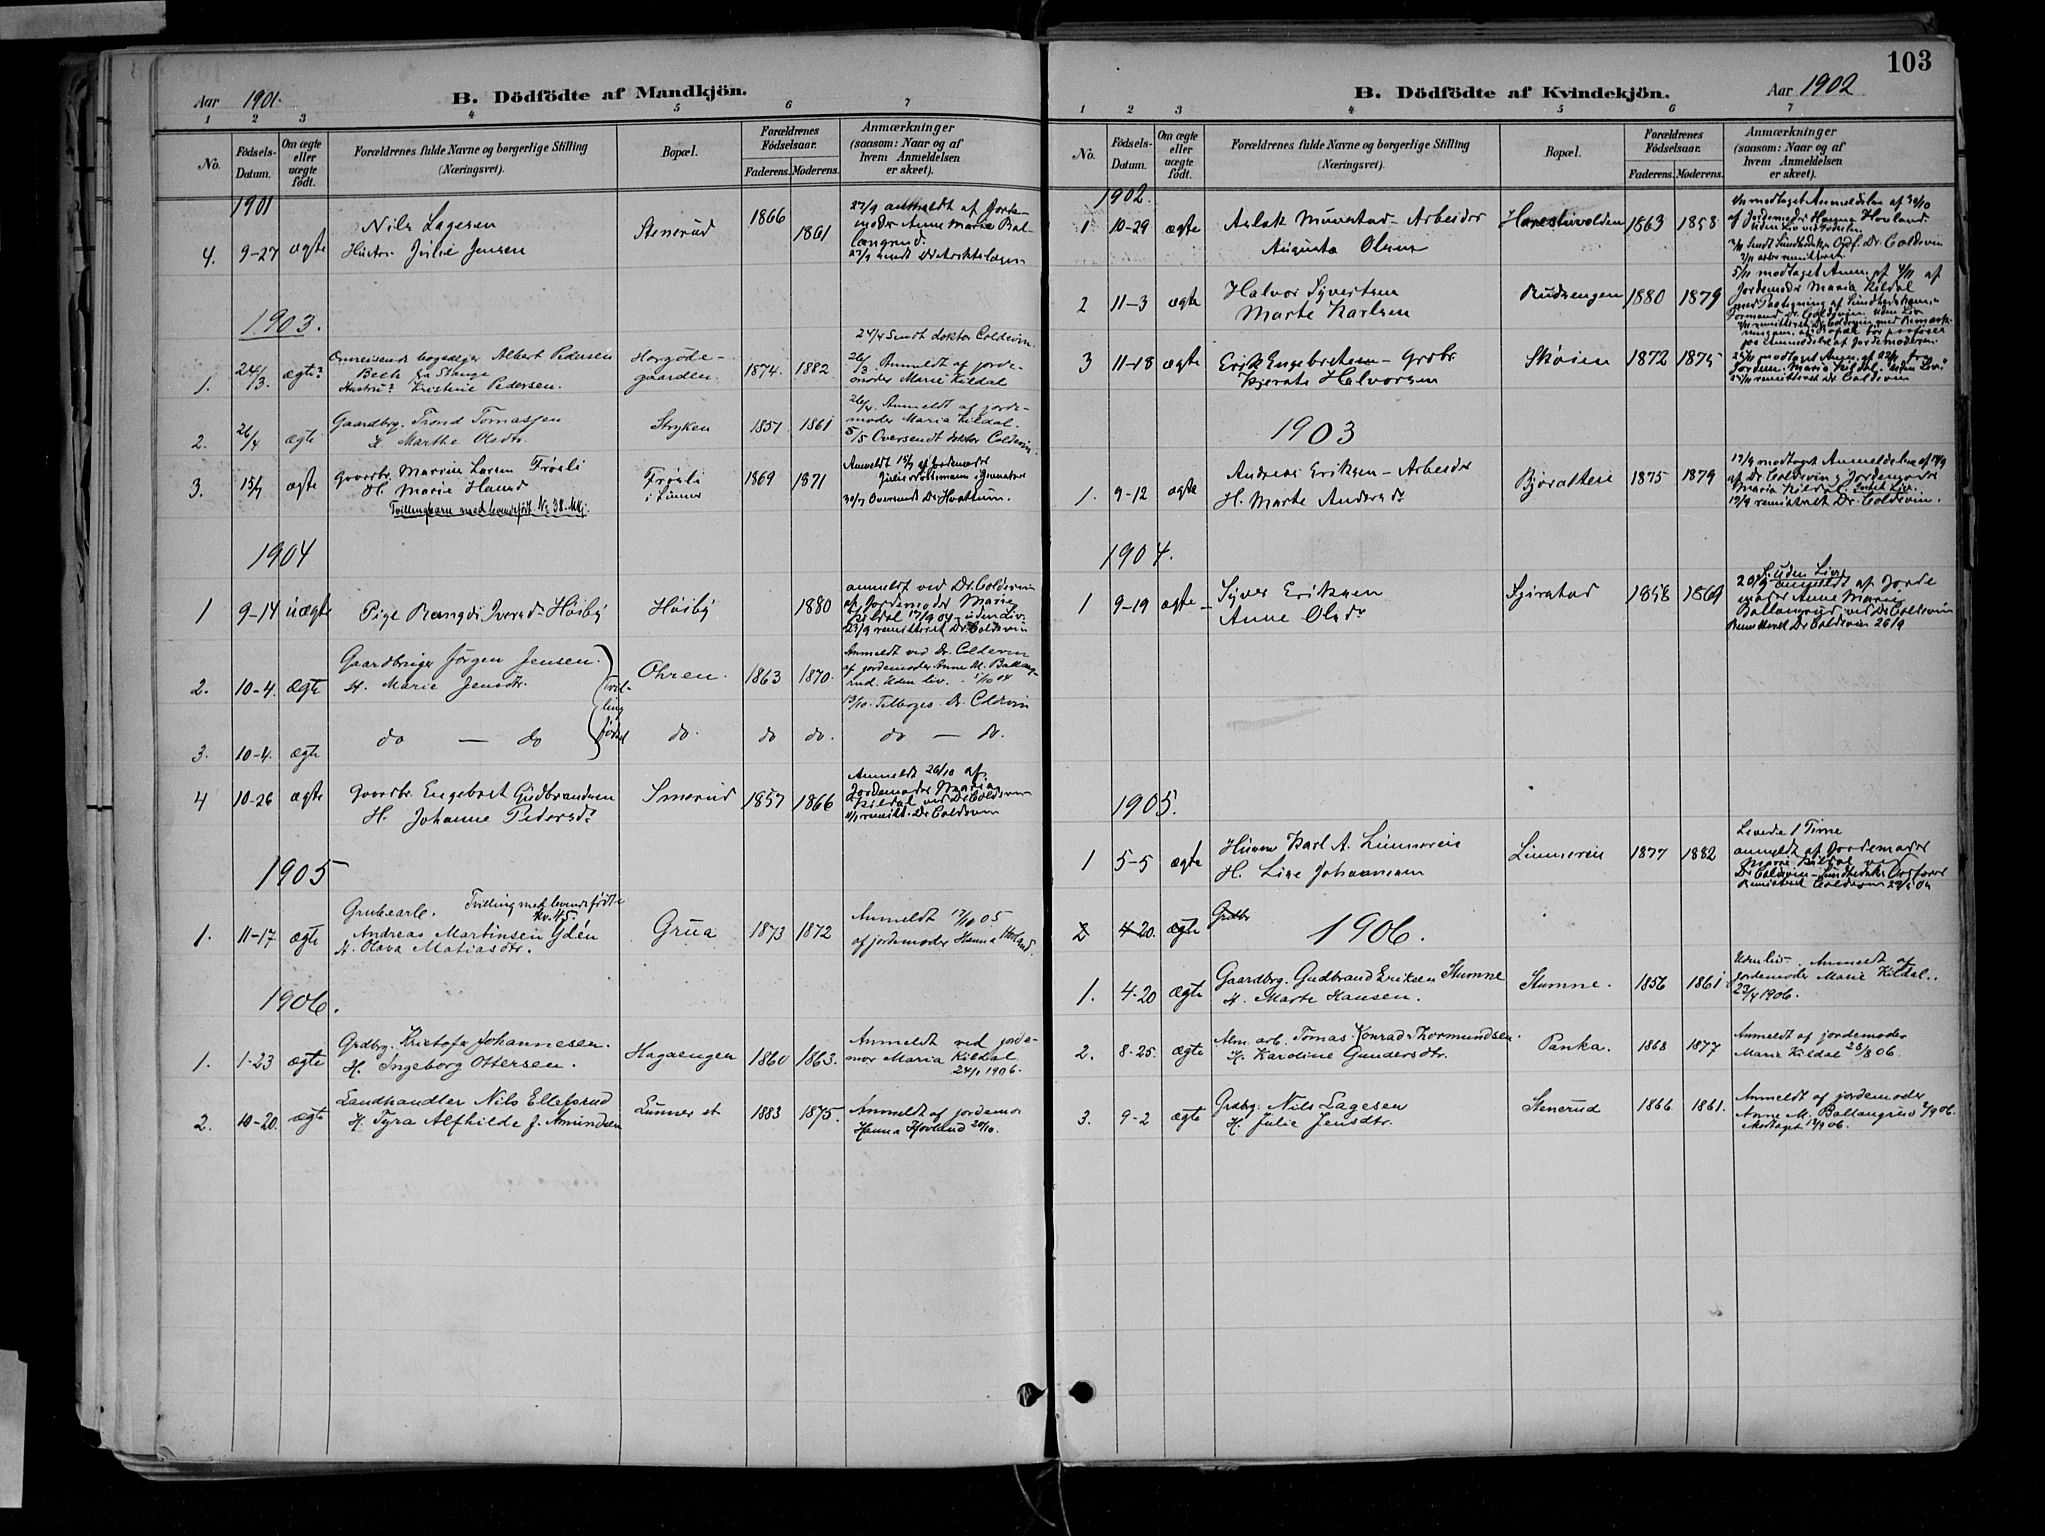 Aar 1901.
B. Dödfödte af Mandkjön.
1 2 3 4 5 6 7
No.
Födsels-Datum.
Om ægte eller uægte födt.
Forældrenes fulde Navne og borgerlige Stilling (Næringsvei).
Bopæl.
Forældrenes Födselsaar.
Faderens. Moderens.
Anmærkninger (saasom: Naar og af hvem Anmeldelsen er skeet).
1901
4. 9-27 ægte Nils Lagesen
Hustr. Julie Jensen
Stenerud 1866 1861
27/9 anmeldt af Jorde-
moder Anne Marie Bal-
langrud.
27/9 sendt Distriktslægen
1903.
24/4 Sendt doktor Coldevin.
1. 24/3. ægte? Omreisende Albert Pedersen
Bech fra Stange
Hustru? Kristine Pedersen.
gaarden. 1874. 1882
26/3. Anmeldt af jorde-
moder Marie Kildal
2. 26/4 ægte Gaardbrg. Trond Tomassen
H. Marthe Olsdtr.
Stryken 1857 1861
26/4. Anmeldt af jorde-
moder Maria Kildal.
5/5 Oversendt doktor Coldevin.
3. 15/7 ægte Gaardbr. Marius Larsen Frøsli
H. Marie Hansd
Tvillingbarn med levendefødt No 38. Mkj.
Frøsli
i Lunner
1869 1871
Anmeldt 15/7 af Jordemoder
30/7 Oversendt Dr.
1904
1 9-14 uægte Pige Rangdi Iversd. Høsby
Høsby 1880
anmeldt ved Dr. Coldevin
af Jordemoder Marie
Kildal 17/9 04 - uden Liv.
23/9 remitteret Dr Coldevin
2. 10-4. ægte Gaardbruger Jörgen Jensen.
H. Marie Jensdtr.
Tvil-
ling
födsel
Ohren. 1863 1870.
Anmeldt ved Dr. Coldevin
af jordemoder Anne M. Ballang-
rud. Uden liv. 5/10 04
13/10. Tilbages. Dr. Coldevin
3. 10-4. ægte do — do do. do do. do — do.
4 10-26 ægte Gaardbr. Engebret Gudbrandsen
H. Johanne Pedersdr
Smerud 1857 1866
Anmeldt 26/10 af
Jordemoder Maria
Kildal ved Dr. Coldevin
remitt. Dr Coldevin
1905
1. 11-17. ægte Grubearb. Tvilling med levendefödte
kv. 45.
Andreas Martinsen Ydén
H. Olava Matiasdtr.
Grua 1873 1872
Anmeldt 17/11 05
af jordemoder Hanna Hovland.
1906.
1. 1-23 ægte Grdbrg. Kristofer Johannesen.
H. Ingeborg Ottersen.
Hagaengen 1860 1863.
Anmeldt ved jorde-
mor Maria Kildal
24/1 1906.
2. 10-20. ægte Landhandler Nils Ellefsrud
H. Tyra Alfhilde J. Amundsen
Lunner st 1883 1875.
Anmeldt af jordemor
Hanna Hovland 20/10.
103
B. Dödfödte af Kvindekjön.
Aar 1902
1 2 3 4 5 6 7
No.
Födsels-Datum.
Om ægte eller uægte födt.
Forældrenes fulde Navne og borgerlige Stilling (Næringsvei).
Bopæl.
Forældrenes Födselsaar.
Faderens. Moderens.
Anmærkninger (saasom: Naar og af hvem Anmeldelsen er skeet).
1902.
1 10-29 ægte Aslak Munstad - Arbeider
Augusta Olsen
Harestuvolden 1863 1858
modtaget Anmeldelse af 30/10
af Jordemoder Hanna Hovland
Uden Liv ved Fødselen
Dr. Coldevin
2 11-3 ægte Halvor Syvertsen
Marte Karlsen
Rudsengen 1880 1879
5/11 modtaget Anm. af 4/11 af
Jordemoder Maria Kildal
med Paategning af
Formand Dr. Coldevin. Uden Liv
paa Anmeldelse af Jordemoderen.
3 11-18 ægte Erik Engebretsen - Grdbr.
Kjersti Halvorsen
Skøien 1872 1875
25/11 modtaget Anm. af 22/11 fra
Jordem. Maria Kildal "Uden Liv."
25/11 remitteret Dr Coldevin
1903
1. 9-12 ægte Andreas Eriksen - Arbeider
H. Marte Andersdr
1875 1879
17/9 modtaget Anmeldelse af 14/9
af Dr Coldevin, Jordemoder
Maria Kildal. Liv.
19/9 remitteret Dr. Coldevin.
1904.
1 9-19 ægte Syver Eriksen
Anne Olsdr
1858 1869
Uden Liv
20/9 anmeldt af Jorde
moder Anne Marie
Ballangrud ved Dr Coldevin
Remitteret Dr Coldevin 26/9
1905.
1 5-5 ægte Karl A. Lunnereie
H. Line Johannesen
Lunnereie 1877 1882
Levede 1 Time
anmeldt af Jordemoder
Marie Kildal ved
Dr Coldevin - Sundhedsk. Ordfører
Remitteret Coldevin
2 4-20. ægte Grdbr
1906.
1. 4-20 ægte Gaardbrg. Gudbrand Eriksen Stumne
H. Marte Hansen.
Stumne. 1856 1861
Uden liv. Anmeldt af
jordemoder Marie Kildal.
23/4 1906.
2. 8-25. ægte Alm. arb. Tomas Konrad Thormundsen.
H. Karoline Gundersdtr.
Panka. 1868 1877
Anmeldt af jordemoder
Marie Kildal 28/8 06.
3. 9-2 ægte Grdbrg. Nils Lagesen
H. Julie Jensdtr.
Stenerud 1866 1861.
Anmeldt af jordemoder
Anne M. Ballangrud 2/9 06.
Modtaget 12/9 06.